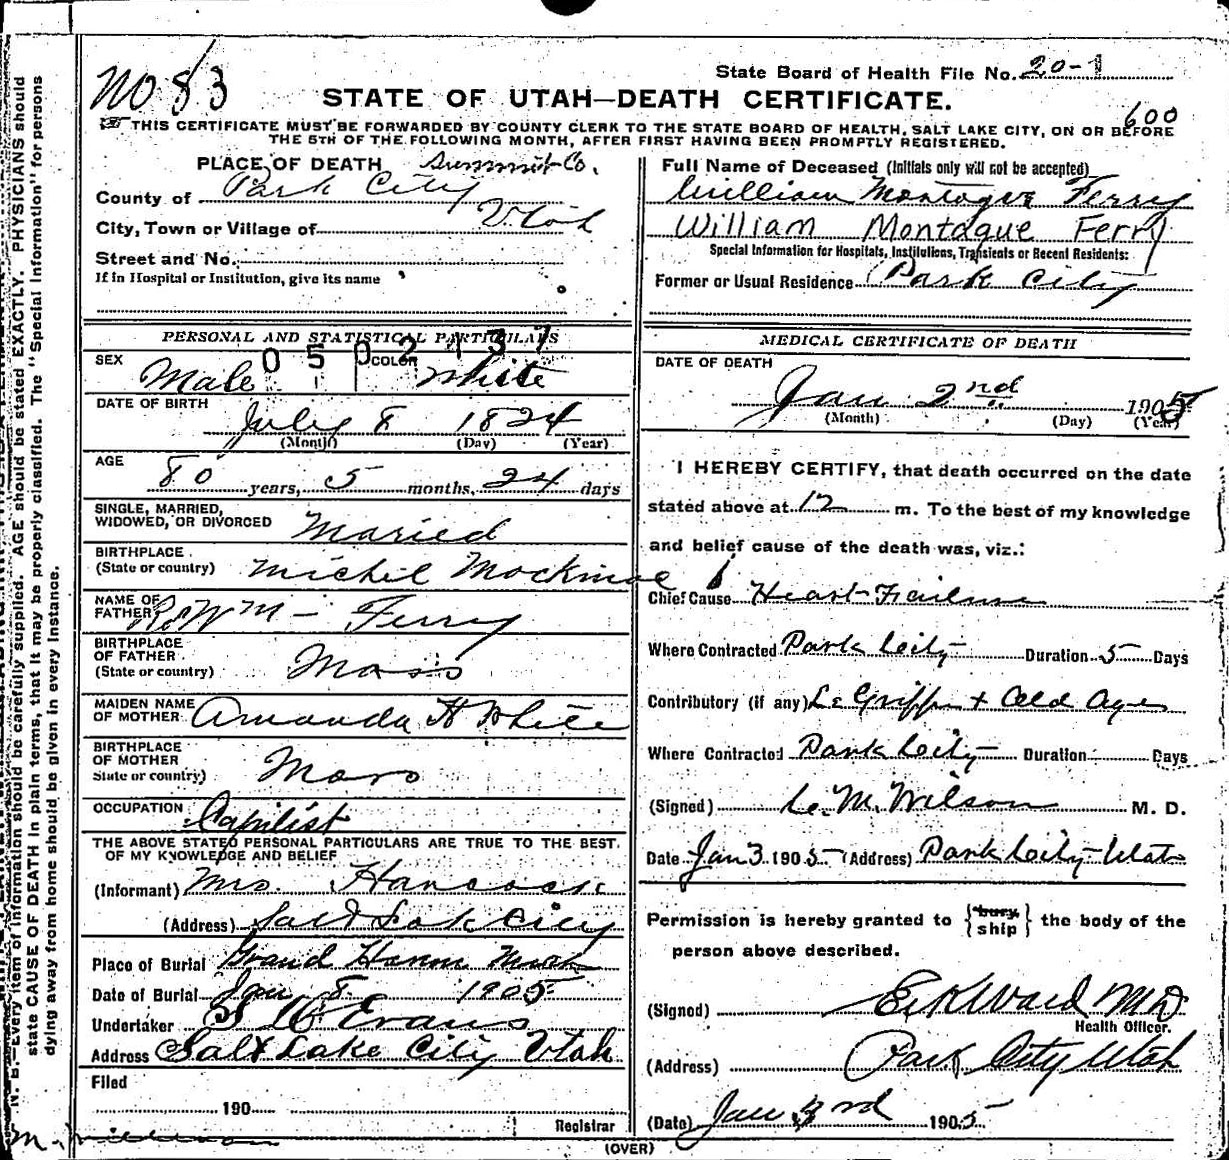 No 83
State Board of Health File No. 20-1
STATE OF UTAH—DEATH CERTIFICATE.
600
THIS CERTIFICATE MUST BE FORWARDED BY COUNTY CLERK TO THE STATE BOARD OF HEALTH, SALT LAKE CITY, ON OR BEFORE
THE 5TH OF THE FOLLOWING MONTH, AFTER FIRST HAVING BEEN PROMPTLY REGISTERED.
PLACE OF DEATH Summit Co.
County of Park City
City, Town or Village of Utah
Street and No.
If in Hospital or Institution, give its name
PERSONAL AND STATISTICAL PARTICULARS
0502137
SEX Male COLOR White
DATE OF BIRTH July 8 1824
(Month) (Day) (Year)
AGE 80 years, 5 months, 24 days
SINGLE, MARRIED,
WIDOWED, OR DIVORCED Maried
BIRTHPLACE
(State or country) Michil Mockinac
NAME OF
FATHER Rev Wm - Ferry
BIRTHPLACE
OF FATHER
(State or country) Mass
MAIDEN NAME
OF MOTHER Amanda H White
BIRTHPLACE
OF MOTHER
State or country) Mass
OCCUPATION Capilist
THE ABOVE STATED PERSONAL PARTICULARS ARE TRUE TO THE BEST.
OF MY KNOWLEDGE AND BELIEF
(Informant) Mrs. Hancock
(Address) Salt Lak City
Place of Burial Grand Haven Mich
Date of Burial Jan 8 1905
Undertaker S W Evans
Address Salt Lake City Utah
Filed
190
Registrar
Full Name of Deceased (Initials only will not be accepted)
William Montague Ferry
William Montague Ferry
Special Information for Hospitals, Institutions, Transients or Recent Residents:
Former or Usual Residence Park City
MEDICAL CERTIFICATE OF DEATH
DATE OF DEATH
Jan 2nd 1905
(Month) (Day) (Year)
I HEREBY CERTIFY, that death occurred on the date
stated above at 12 m. To the best of my knowledge
and belief cause of the death was, viz.:
Chief Cause Heart Failure
Where Contracted Park City Duration 5 Days
Contributory (if any) La Grippe + Old Age
Where Contracted Park City Duration Days
(Signed) L. M. Wilson M. D.
Date Jan 3 1905 (Address) Park City Utah
Permission is hereby granted to {bury, ship} the body of the
person above described.
(Signed) E. K. Ward M D
Health Officer.
(Address) Park City Utah
(Date) Jan 3rd 1905
(OVER)
N. B.—Every item of information should be carefully supplied. AGE should be stated EXACTLY. PHYSICIANS should
state CAUSE OF DEATH in plain terms, that it may be properly classified. The "Special Information" for persons
dying away from home should be given in every instance.